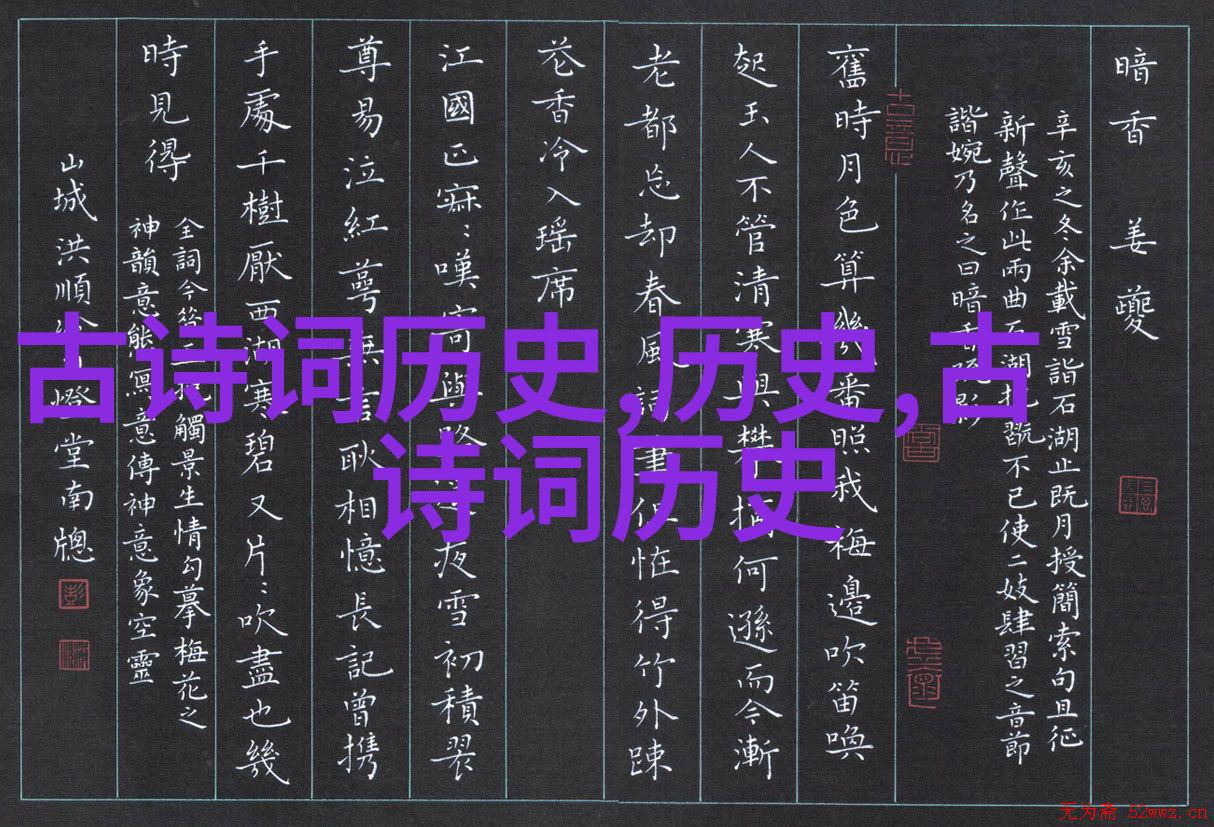 古诗词历史,历史,古
诗词历史
暗香 姜夔
辛亥之冬余載雪詣石湖止既月授簡索句且征
新聲作此兩曲石湖把翫不已使二妓肄習之音節
諧婉乃名之曰暗香疏影
古意
舊時月色算幾番照我梅邊吹笛喚
起玉人不管清寒與攀摘何遜而今漸
老都忘却春風詞筆但恠得竹外疎
花香冷入瑶席
江國正寂:嘆寄與路遥夜雪初積翠
尊易泣紅萼無言耿相憶長記曾携
手處千樹壓西湖寒碧又片:吹盡也幾
時見得
全詞今昔觸景生情勾摹梅花之
神韻意態寫意傳神意象空靈
山城洪順燈堂南牕
无为斋 52wwz.cn